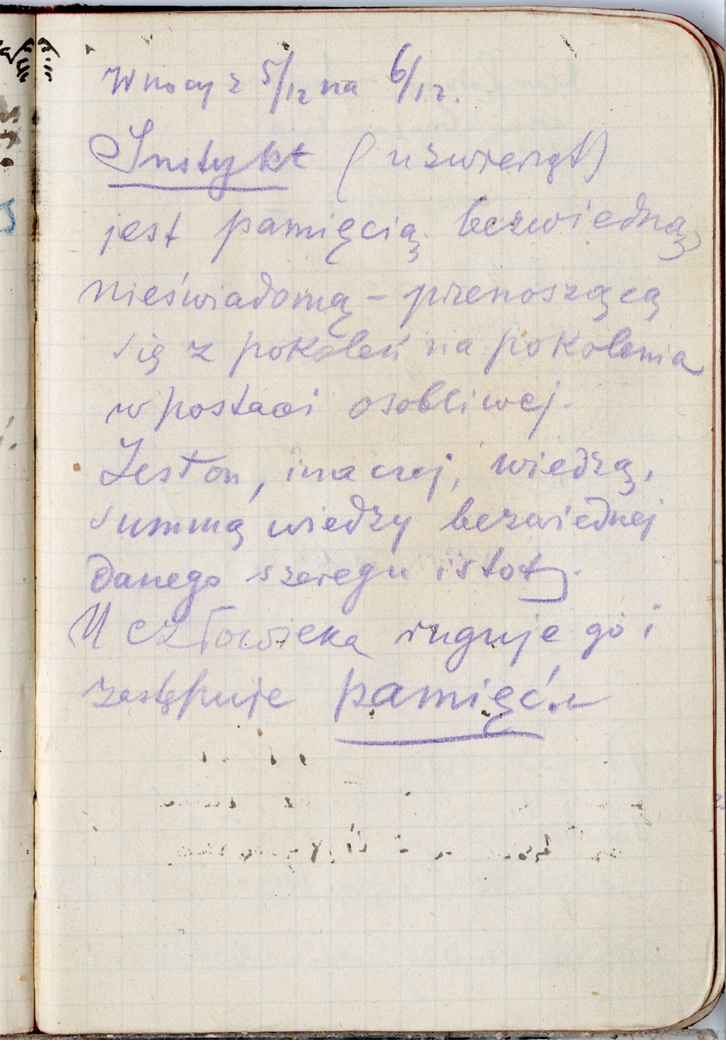 W nocy z 5/12 na 6/12.
Instykt (u zwierząt)
jest pamięcią bezwiedną,
nieświadomą – przenoszącą
się z pokoleń na pokolenia
w postaci osobliwej.
Jest on, inaczej, wiedzą,
summą wiedzy bezwiednej
danego szeregu istot.
U człowieka ruguje go i
zastępuje pamięć